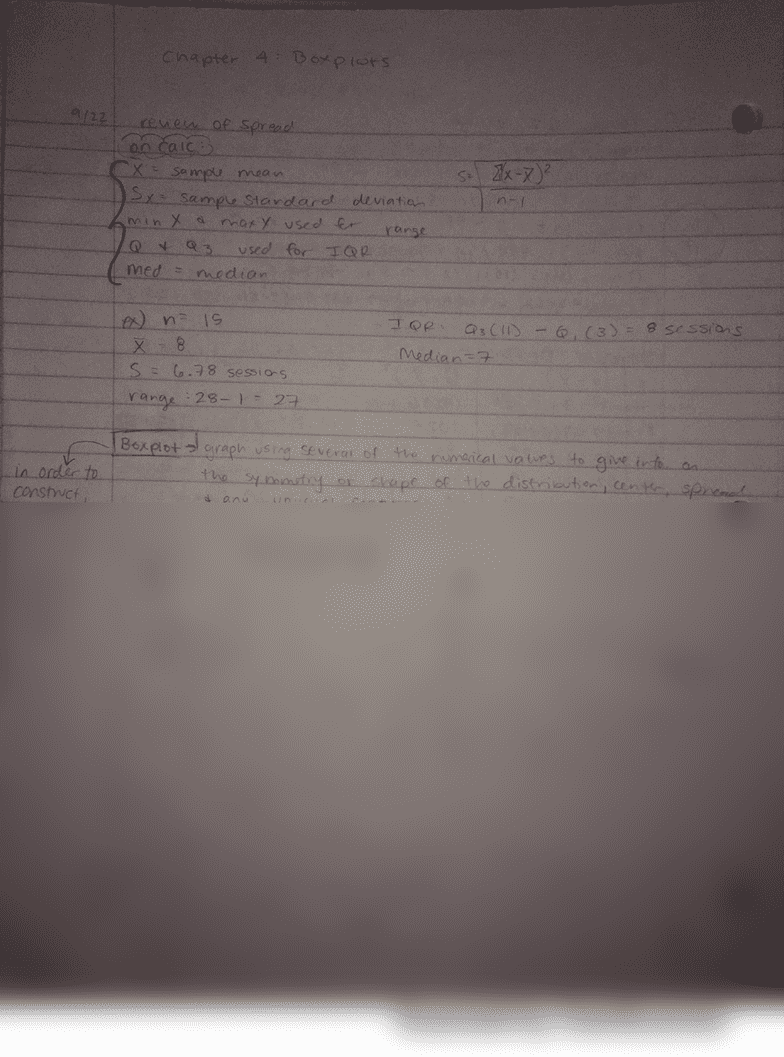 Chapter 4: Boxplots
9/22 review of spread
on calc:
x̄ = sample mean
s = √ Σ(x-x̄)² / n-1
Sx = sample standard deviation
min X & max X used for range
Q & Q3 used for IQR
med = median
ex) n = 15
IQR: Q3(11) - Q1(3) = 8 sessions
x̄ = 8
Median = 7
S = 6.78 sessions
range: 28 - 1 = 27
Boxplot → graph using several of the numerical values to give info on
in order to
the symmetry or shape of the distribution, center, spread
construct:
& any